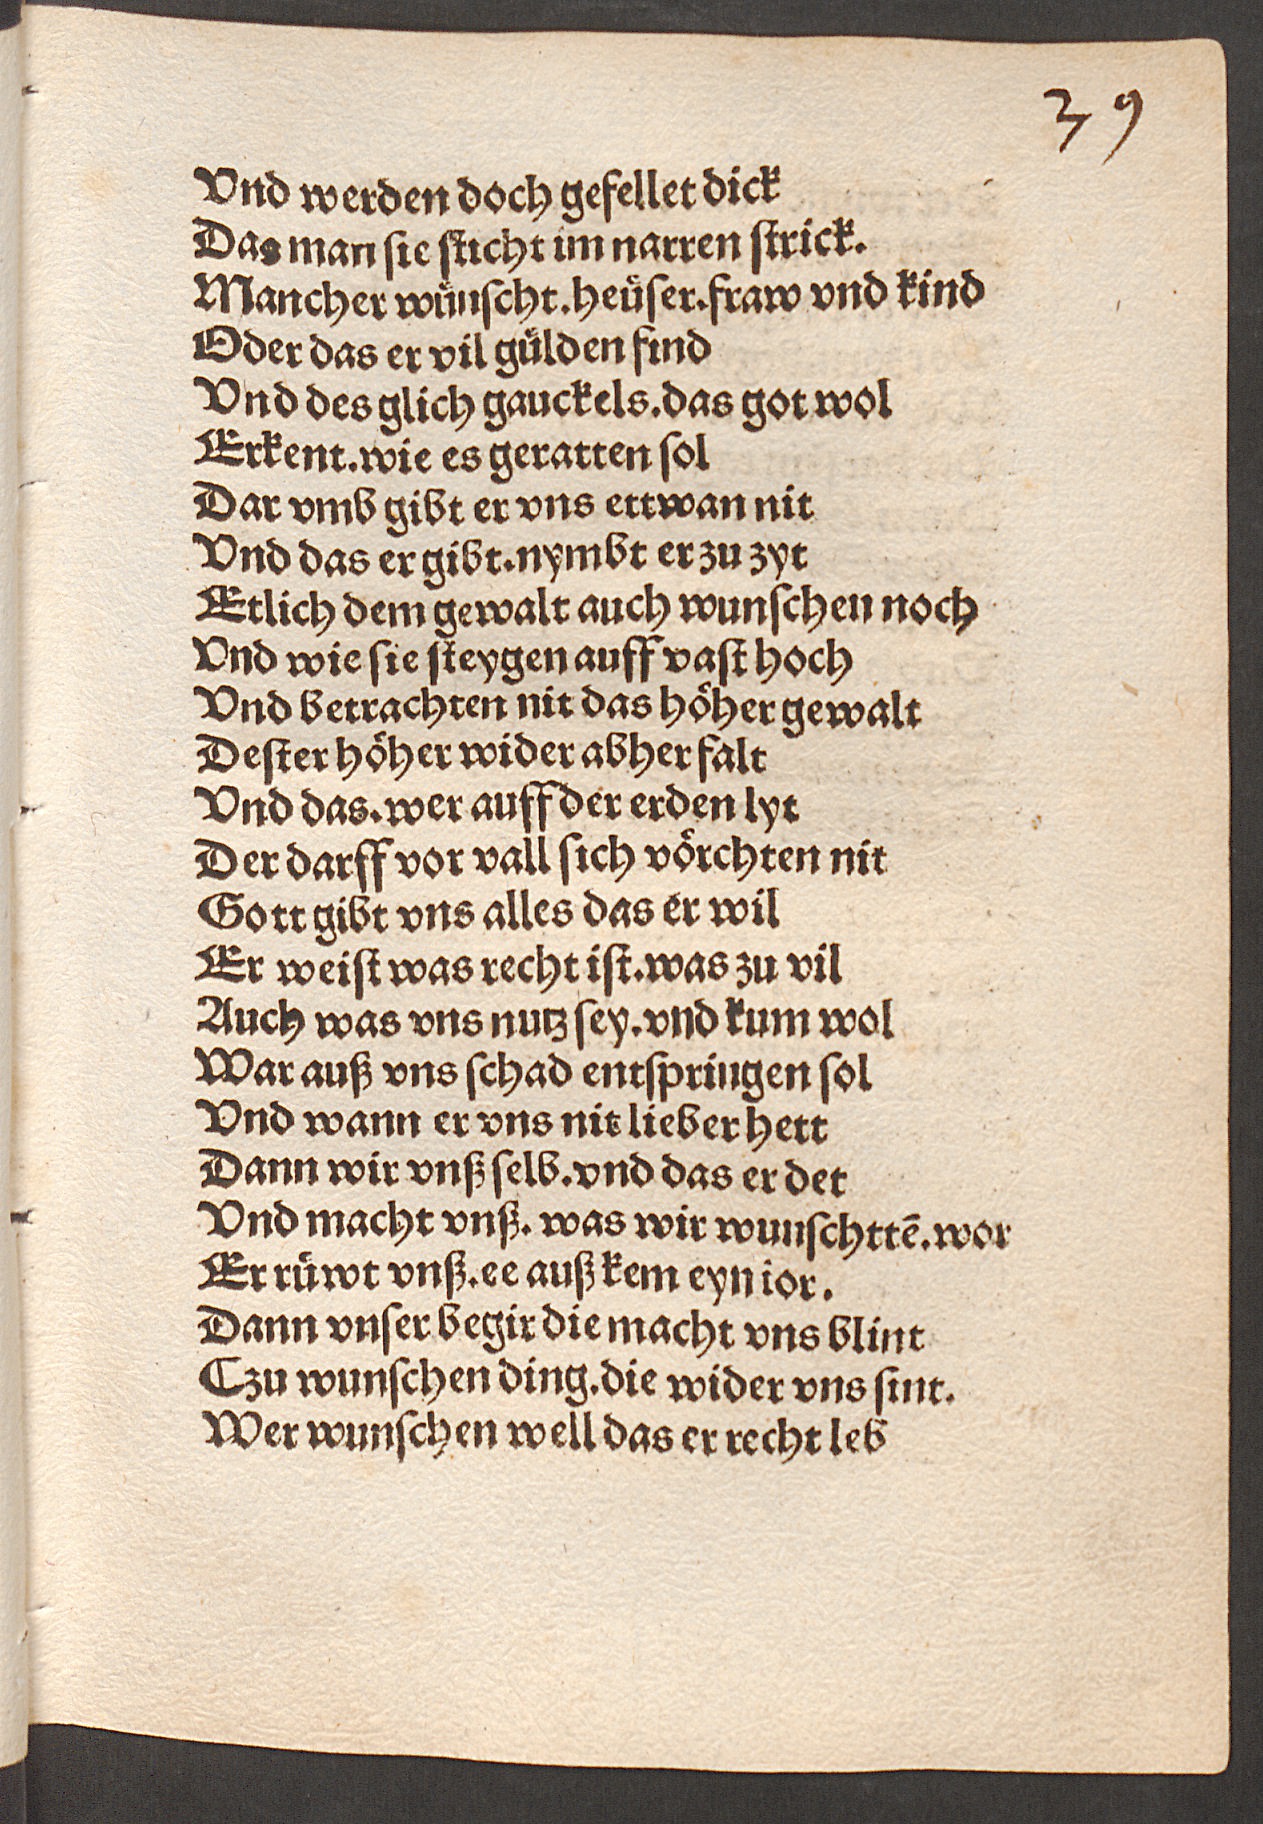 39
Vnd werden doch gefellet dick
Das man sie sticht im narren strick.
Mancher wünscht.heüser.fraw vnd kind
Oder das er vil gülden find
Vnd des glich gauckels.das got wol
Erkent.wie es geratten sol
Dar vmb gibt er vns ettwan nit
Vnd das er gibt.nymbt er zu zyt
Etlich dem gewalt auch wunschen noch
Vnd wie sie steygen auff vast hoch
Vnd betrachten nit das höher gewalt
Dester höher wider abher falt
Vnd das.wer auff der erden lyt
Der darff vor vall sich vörchten nit
Gott gibt vns alles das er wil
Er weist was recht ist.was zu vil
Auch was vns nutz sey.vnd kum wol
War auß vns schad entspringen sol
Vnd wann er vns nit lieber hett
Dann wir vnß selb.vnd das er det
Vnd macht vnß. was wir wunschttē.wor
Er rüwt vnß.ee auß kem eyn ior.
Dann vnser begir die macht vns blint
Czu wunschen ding.die wider vns sint.
Wer wunschen well das er recht leb